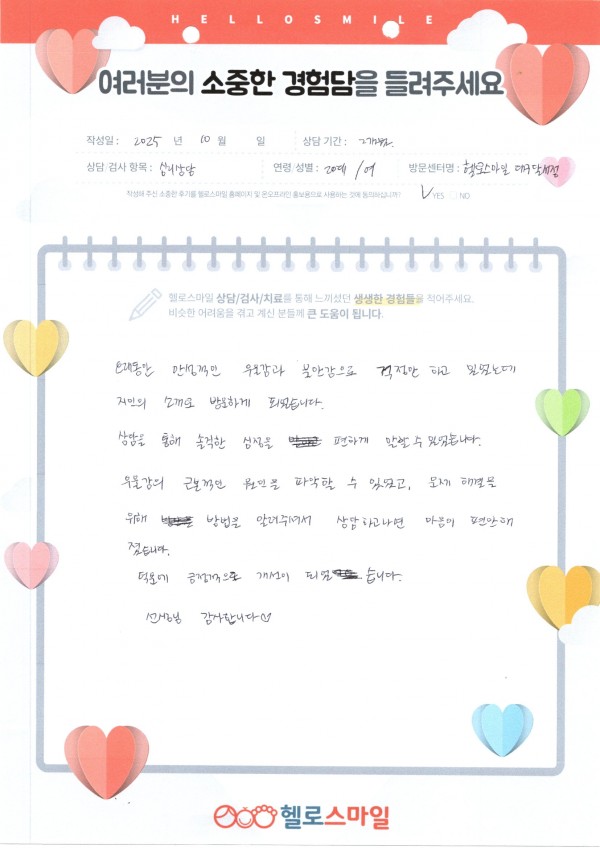 HELLOSMILE
여러분의 소중한 경험담을 들려주세요
작성일 : 2025 년 10 월 일 상담 기간 : 2개월
상담·검사 항목 : 심리상담 연령·성별 : 20대 / 여 방문센터명 : 헬로스마일 대구달서점
작성해 주신 소중한 후기를 헬로스마일 홈페이지 및 온오프라인 홍보용으로 사용하는 것에 동의하십니까? YES NO
헬로스마일 상담/검사/치료를 통해 느끼셨던 생생한 경험들을 적어주세요.
비슷한 어려움을 겪고 계신 분들께 큰 도움이 됩니다.
오래동안 만성적인 우울감과 불안감으로 걱정만 하고 있었는데
지인의 소개로 방문하게 되었습니다.
상담을 통해 솔직한 심정을 편하게 말할 수 있었습니다.
우울감의 근본적인 원인을 파악할 수 있었고, 문제 해결을
위해 방법을 알려주셔서 상담하고나면 마음이 편안해
졌습니다.
덕분에 긍정적으로 개선이 되었습니다.
선생님 감사합니다♡
헬로스마일